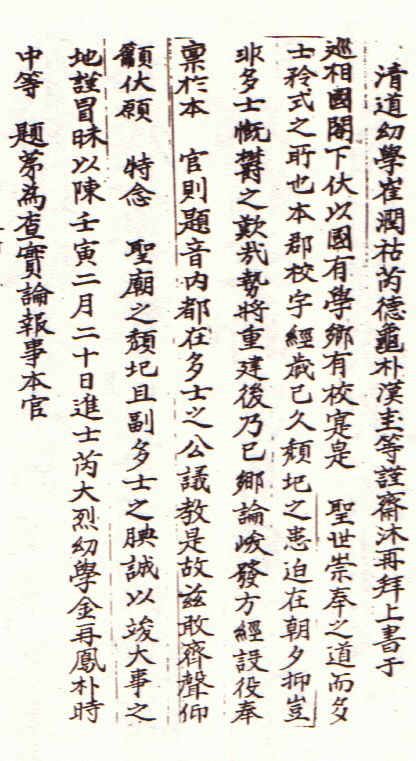 清道幼學崔潤祜芮德龜朴漢圭等謹齋沐再拜上書于
巡相國閤下伏以國有學鄉有校寔是 聖世崇奉之道而多
士矜式之所也本郡校宇經歲已久頹圮之患迫在朝夕抑豈
非多士慨欝之歎㦲勢將重建後乃已鄉論峻發方經設役奉
禀扵本 官則題音內都在多士之公議教是故玆敢齊聲仰
籲伏願 特念 聖廟之頹圮且副多士之腆誠以竣大事之
地謹冒昧以陳壬寅二月二十日進士芮大烈幼學金再鳳朴時
中等 題苐為查實論報事本官